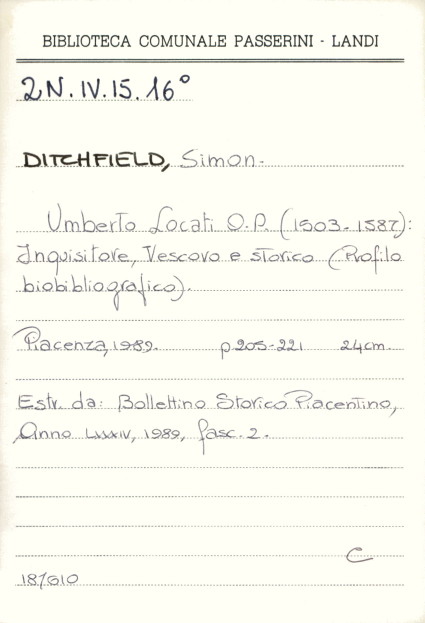 BIBLIOTECA COMUNALE PASSERINI - LANDI
2N.IV.15.16°
DITCHFIELD, Simon.
Umberto Locati O.P. (1503-1587):
Inquisitore, Vescovo e storico (Profilo
biobibliografico).
Piacenza, 1989. p 205-221 24cm.
Estr. da: Bollettino Storico Piacentino,
Anno LXXXIV, 1989, fasc. 2.
C
187610